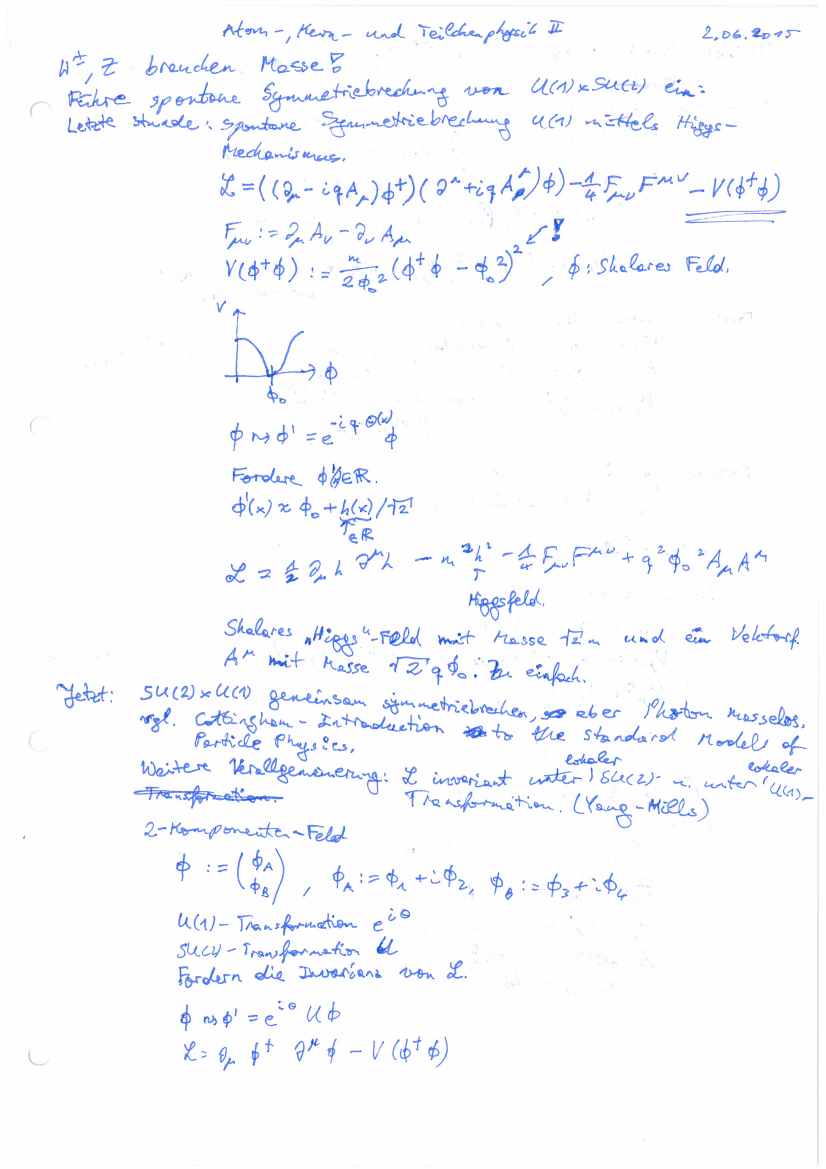 Atom-, Kern- und Teilchenphysik II 2.06.2015
W±, Z brauchen Masse!
Führe spontane Symmetriebrechung von U(1)×SU(2) ein:
Letzte Stunde: spontane Symmetriebrechung U(1) mittels Higgs-
Mechanismus.
ℒ = ((∂_μ - iqA_μ)ϕ†)(∂^μ + iqA^μ)ϕ) - 1/4 F_μν F^μν - V(ϕ†ϕ)
F_μν := ∂_μ A_ν - ∂_ν A_μ
V(ϕ†ϕ) := m/2ϕ₀² (ϕ†ϕ - ϕ₀²)² , ϕ: Skalares Feld.
!
V
ϕ
ϕ₀
ϕ ⇝ ϕ' = e^{-iqΘ(x)} ϕ
Fordere ϕ' ∈ ℝ.
ϕ'(x) ≈ ϕ₀ + h(x)/√2
∈ℝ
ℒ = 1/2 ∂_μ h ∂^μ h - m²h² - 1/4 F_μν F^μν + q²ϕ₀² A_μ A^μ
Higgsfeld.
Skalares „Higgs“-Feld mit Masse √2 m und ein Vektorf.
A^μ mit Masse √2 qϕ₀. Zu einfach.
Jetzt: SU(2)×U(1) gemeinsam symmetriebrechen, aber Photon masselos.
vgl. Cottingham - Introduction to the Standard Models of
Particle Physics.
Weitere Verallgemeinerung: ℒ invariant unter lokaler SU(2)- u. unter lokaler U(1)-
Transformation. Transformation. (Yang-Mills)
2-Komponenten-Feld
ϕ := (ϕ_A ϕ_B) , ϕ_A := ϕ₁ + iϕ₂, ϕ_B := ϕ₃ + iϕ₄
U(1)-Transformation e^{iΘ}
SU(2)-Transformation U
Fordern die Invarianz von ℒ.
ϕ ⇝ ϕ' = e^{iΘ} Uϕ
ℒ = ∂_μ ϕ† ∂^μ ϕ - V(ϕ†ϕ)